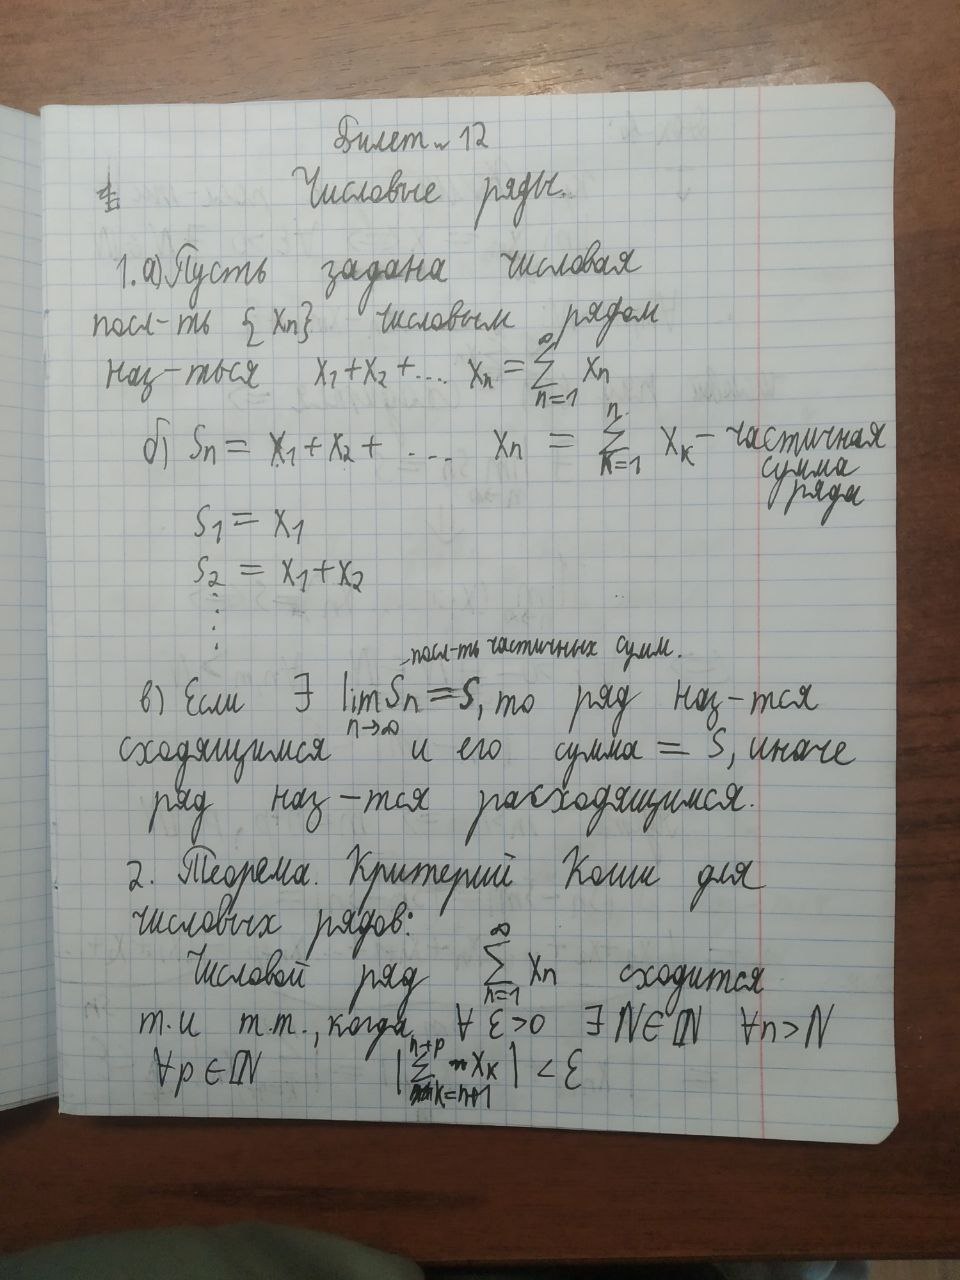 Билет № 12
Числовые ряды.
1. а) Пусть задана числовая
посл-ть {xₙ} числовым рядом
наз-ться x₁+x₂+... xₙ = ∑ₙ₌₁^∞ xₙ
б) Sₙ = x₁+x₂+ ... xₙ = ∑ₖ₌₁ⁿ xₖ – частичная
сумма
ряда
S₁ = x₁
S₂ = x₁+x₂
посл-ть частичных сумм.
в) Если ∃ lim Sₙ = S, то ряд наз-тся
n→∞
сходящимся и его сумма = S, иначе
ряд наз-тся расходящимся.
2. Теорема. Критерий Коши для
числовых рядов:
Числовой ряд ∑ₙ₌₁^∞ xₙ сходится
т.и т.т., когда ∀ ε>0 ∃ N∈ℕ ∀n>N
∀p∈ℕ |∑ₖ₌ₙ₊₁ⁿ⁺ᵖ xₖ| < ε